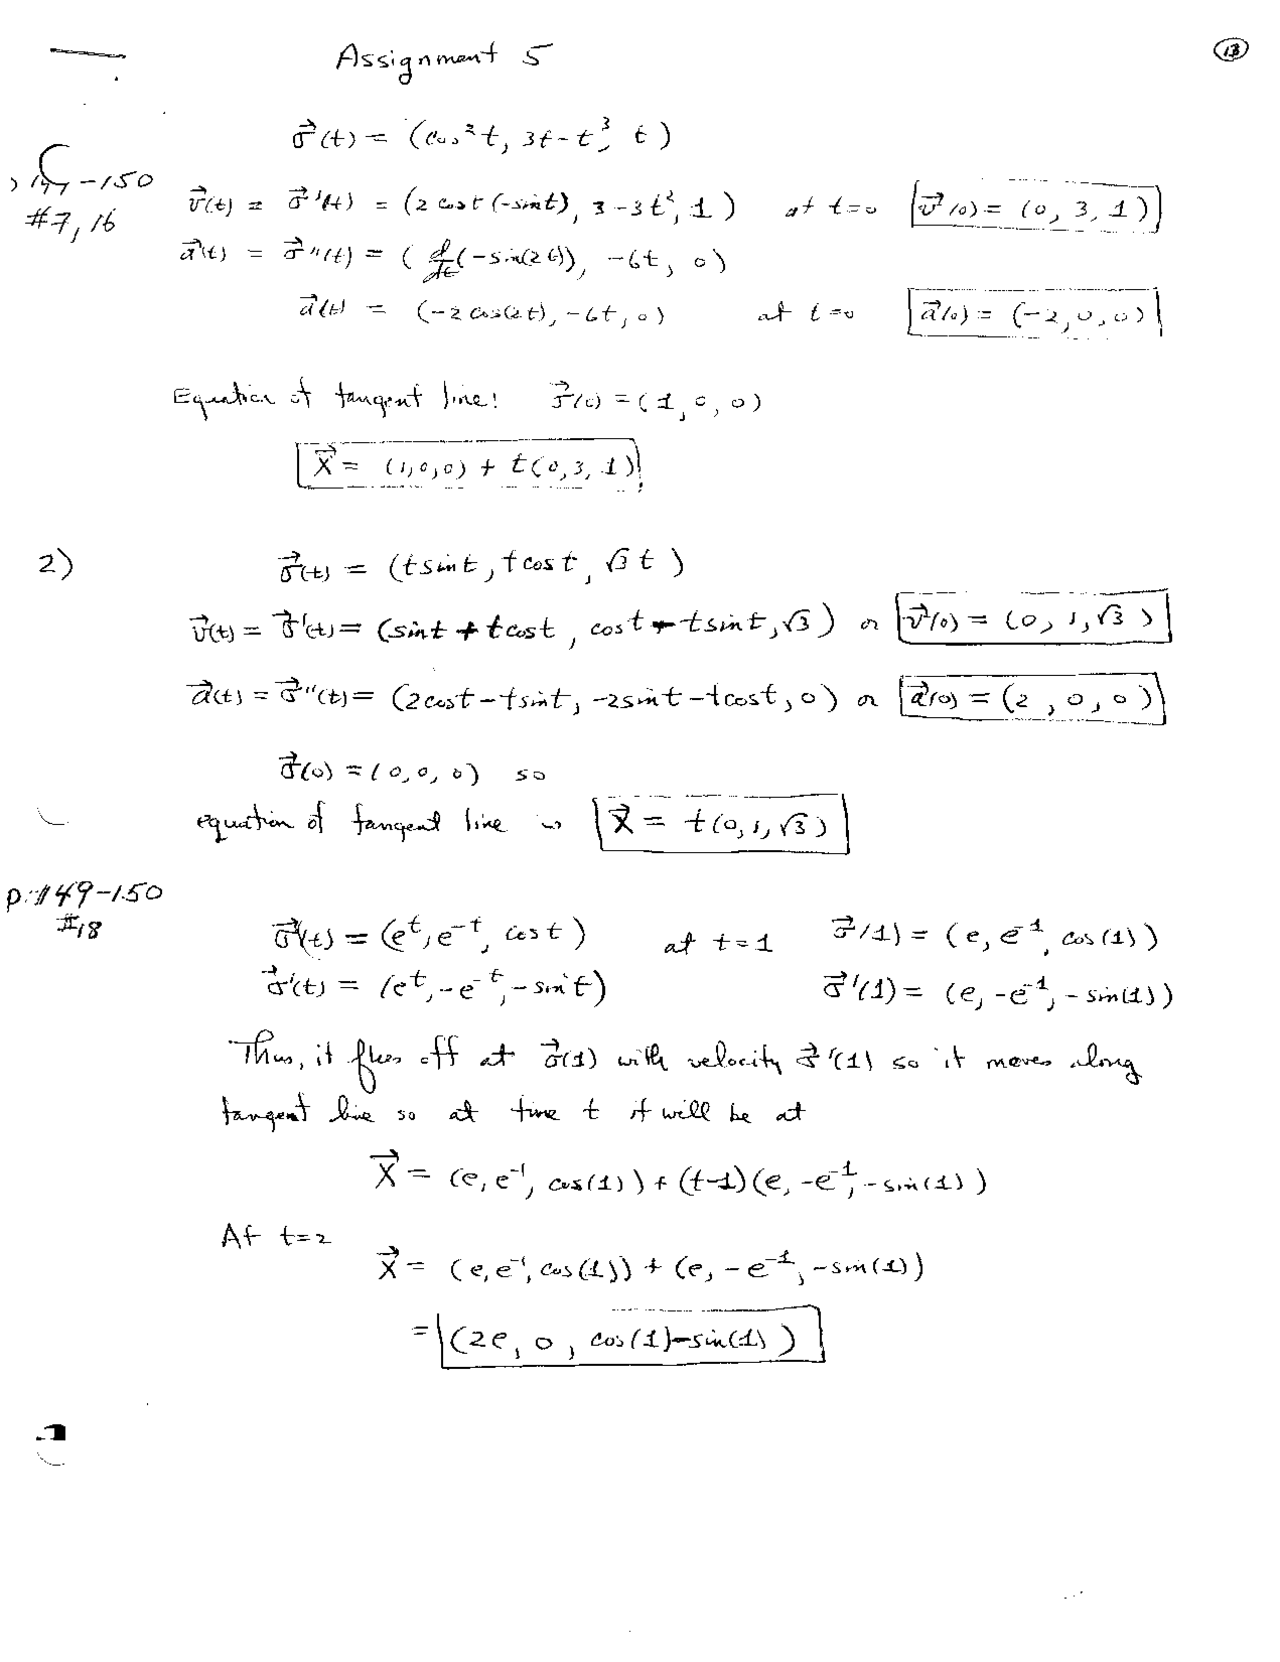 Assignment 5
13
σ⃗(t) = (cos²t, 3t-t³, t)
-150
#7, 16
v⃗(t) = σ⃗'(t) = (2cost(-sint), 3-3t², 1) at t=0 v⃗(0) = (0, 3, 1)
a⃗(t) = σ⃗''(t) = (d/dt(-sin(2t)), -6t, 0)
a⃗(t) = (-2cos(2t), -6t, 0) at t=0 a⃗(0) = (-2, 0, 0)
Equation of tangent line: σ⃗(0) = (1, 0, 0)
X⃗ = (1,0,0) + t(0, 3, 1)
2) σ⃗(t) = (tsint, tcost, √3 t)
v⃗(t) = σ⃗'(t) = (sint + tcost, cost - tsint, √3) or v⃗(0) = (0, 1, √3)
a⃗(t) = σ⃗''(t) = (2cost-tsint, -2sint-tcost, 0) or a⃗(0) = (2, 0, 0)
σ⃗(0) = (0, 0, 0) so
equation of tangent line is X⃗ = t(0, 1, √3)
p. 149-150
#18
σ⃗(t) = (e^t, e^-t, cost) at t=1 σ⃗(1) = (e, e^-1, cos(1))
σ⃗'(t) = (e^t, -e^-t, -sint) σ⃗'(1) = (e, -e^-1, -sin(1))
Thus, it flies off at σ⃗(1) with velocity σ⃗'(1) so it moves along
tangent line so at time t it will be at
X⃗ = (e, e^-1, cos(1)) + (t-1)(e, -e^-1, -sin(1))
At t=2
X⃗ = (e, e^-1, cos(1)) + (e, -e^-1, -sin(1))
= (2e, 0, cos(1)-sin(1))